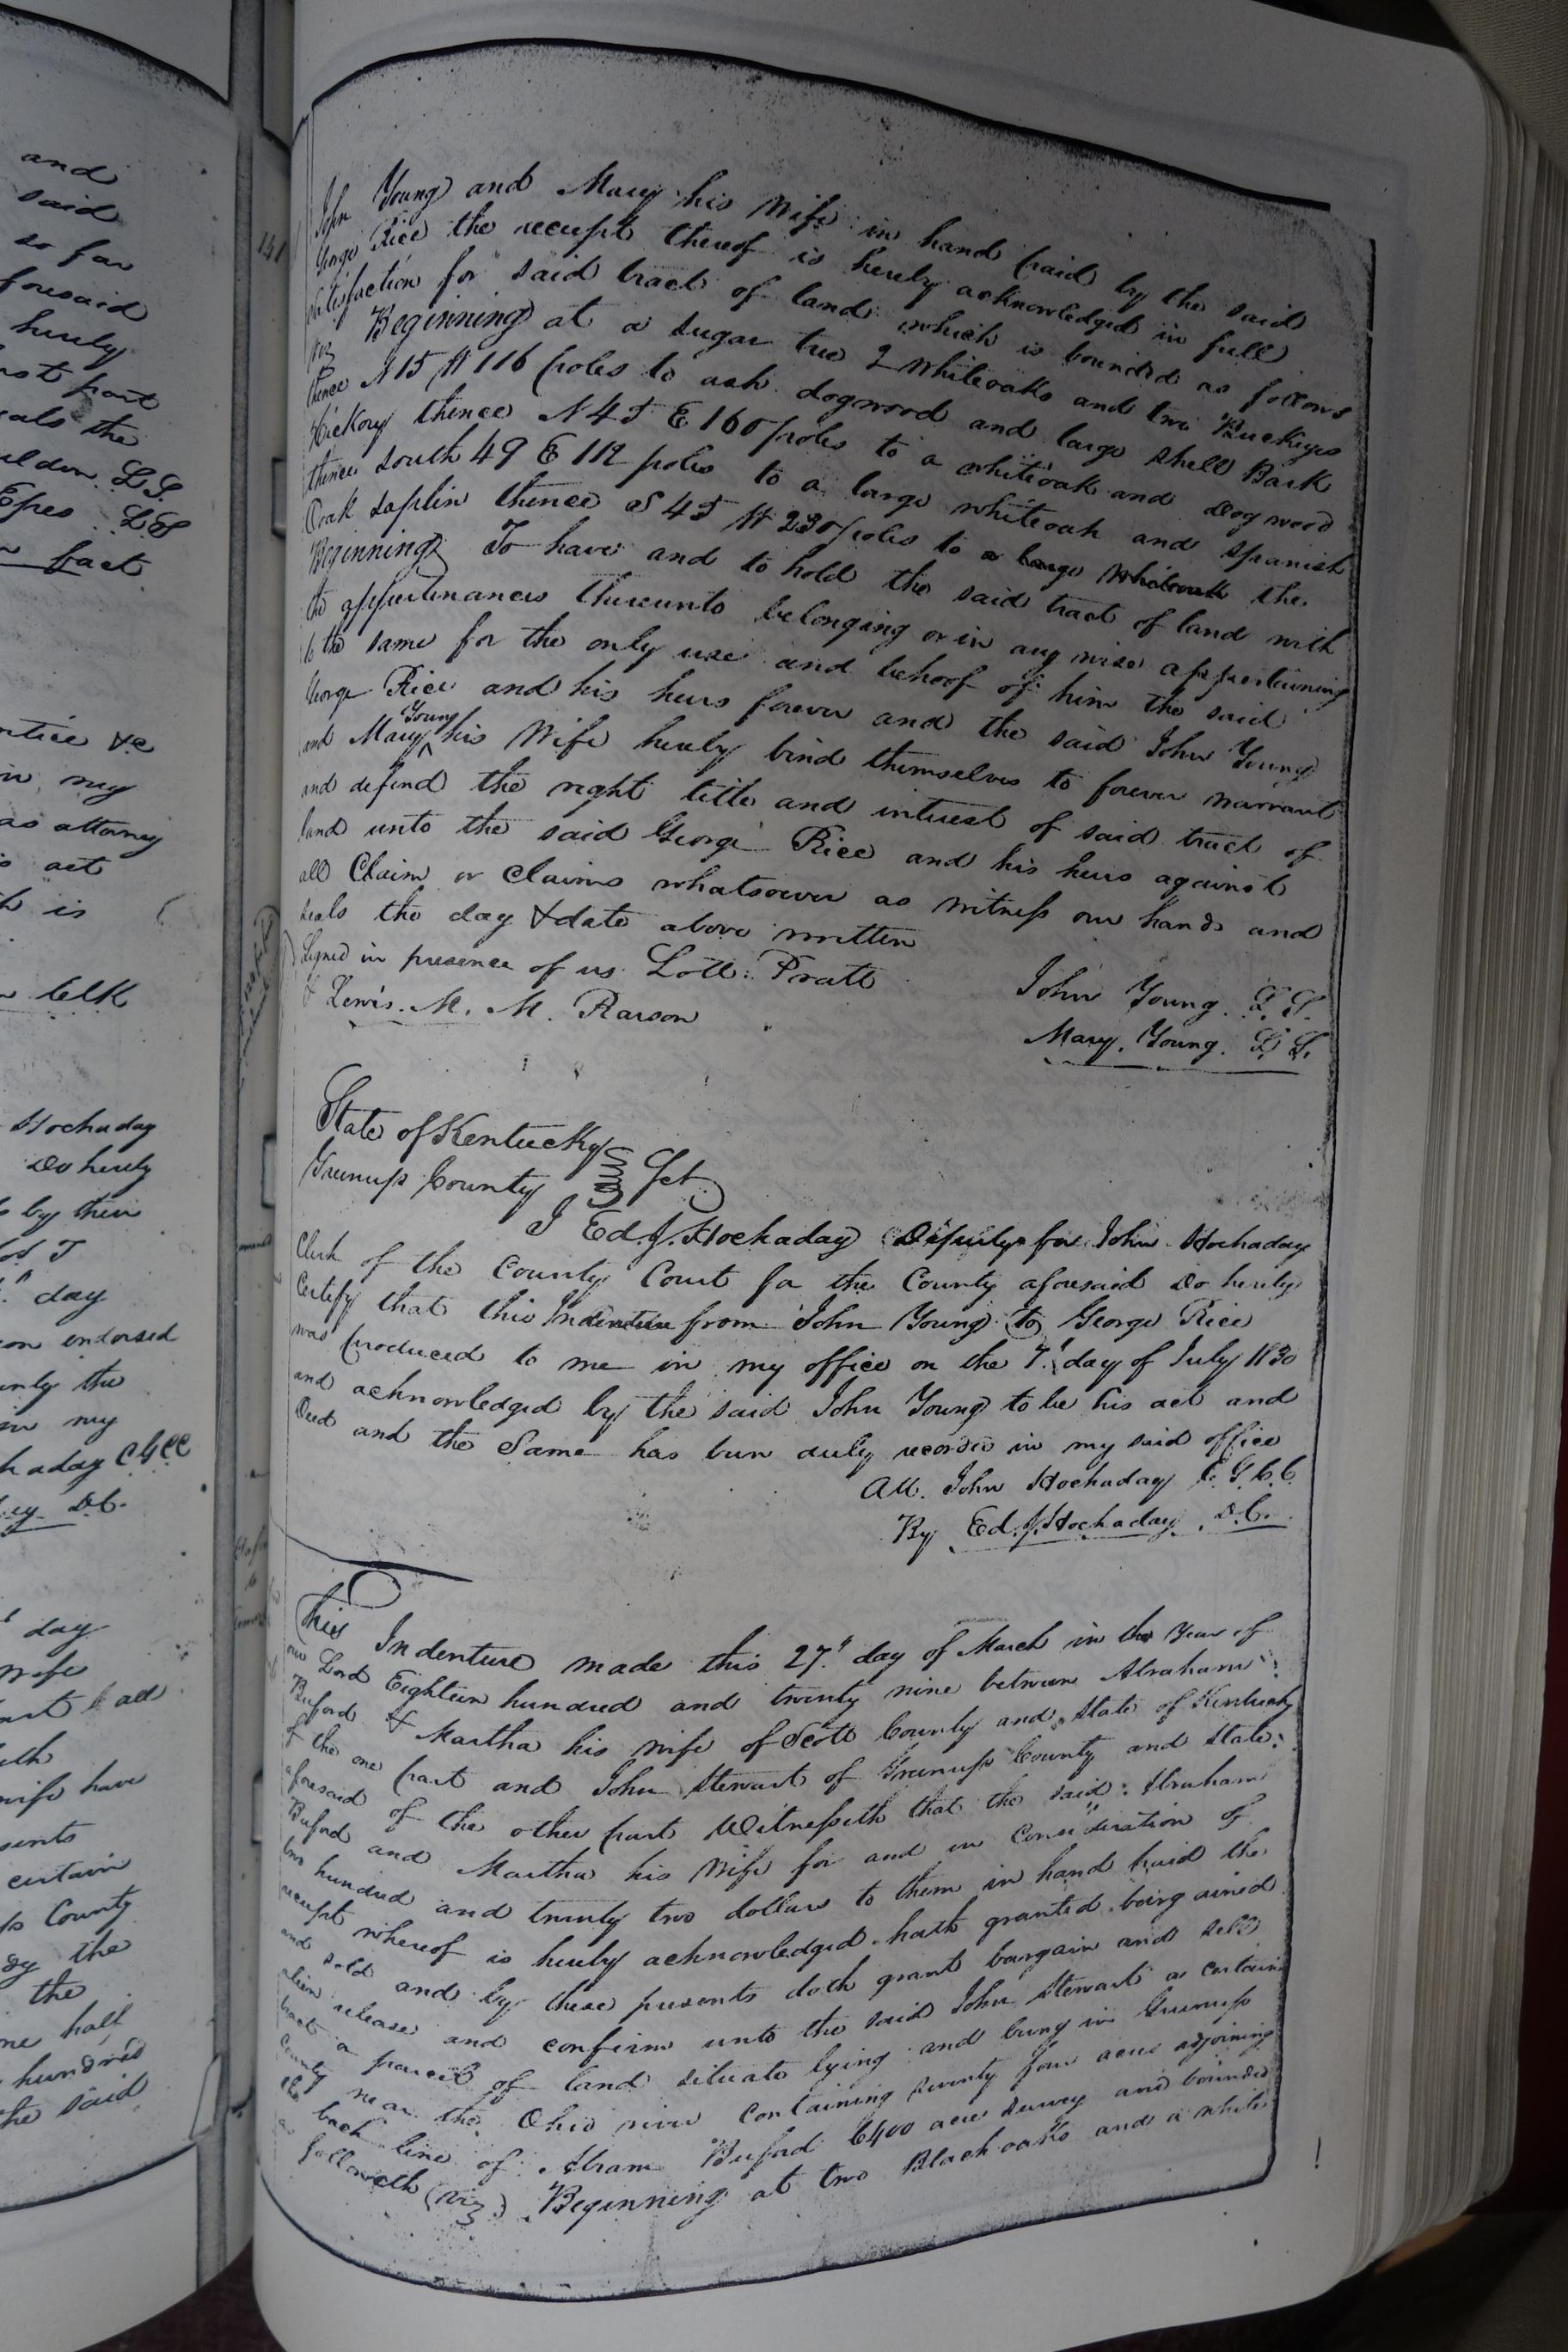 and
said
so far
foresaid
hereby
part
eals the
L.S.
Epes L.S.
fact
&c
in my
as attorney
act
is
Clk
Hochaday
Do hereby
by their
day
on endorsed
the
in my
haday C G C C
D.C.
day
wife
all
wife have
sents
certain
County
the
the
one half
hundred
the said
141
John Young and Mary his Wife in hand paid by the said
George Rice the receipt thereof is hereby acknowledged in full
satisfaction for said tract of land which is bounded as follows
viz Beginning at a sugar tree 2 whiteoaks and two Buckeyes
thence N 15 W 116 poles to ash dogwood and large shell Bark
Hickory thence N 45 E 160 poles to a whiteoak and dogwood
thence south 49 E 112 poles to a large whiteoak and Spanish
Oak saplin thence S 45 W 230 poles to a large Whiteoak the
Beginning To have and to hold the said tract of land with
the appurtenances thereunto belonging or in any wise appertaining
to the same for the only use and behoof of him the said
George Rice and his heirs forever and the said John Young
and Mary Young his Wife hereby bind themselves to forever warrant
and defend the right title and interest of said tract of
land unto the said George Rice and his heirs against
all Claim or claims whatsoever as witness our hands and
seals the day & date above written
Signed in presence of us Lott: Pratt
& Lewis. M. M. Rarson
John Young. L. S.
Mary. Young. L S.
State of Kentucky
Greenup County Sct
I Ed. J. Hockaday Deputy for John Hockaday
Clerk of the County Court for the County aforesaid Do hereby
certify that this Indenture from John Young to George Rice
was produced to me in my office on the 7th day of July 1830
and acknowledged by the said John Young to be his act and
Deed and the Same has been duly recorded in my said office
Att. John Hockaday C. G. C. C.
By Ed. J. Hockaday D.C.
This Indenture made this 27" day of March in the Year of
our Lord Eighteen hundred and twenty nine between Abraham
Buford & Martha his wife of Scott County and State of Kentucky
of the one part and John Stewart of Greenup County and State
aforesaid of the other part Witnesseth that the said Abraham
Buford and Martha his Wife for and in consideration of
two hundred and twenty two dollars to them in hand paid the
receipt whereof is hereby acknowledged hath granted bargained
and sold and by these presents doth grant bargain and sell
alien release and confirm unto the said John Stewart a certain
tract or parcel of land situate lying and being in Greenup
County near the Ohio river containing seventy four acres adjoining
the back line of Abram Buford 6400 acre survey and bounded
as followeth (viz) Beginning at two Black oaks and a white